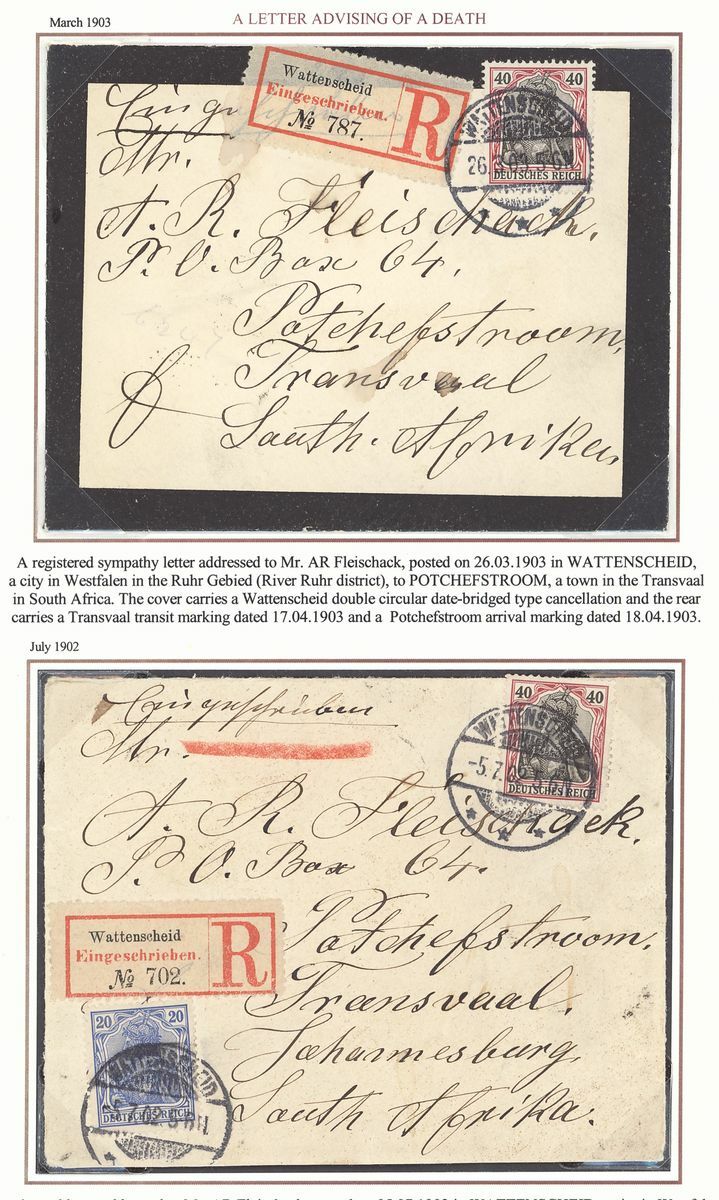 March 1903
A LETTER ADVISING OF A DEATH
Wattenscheid
Eingeschrieben.
№ 787.
R
40 40
DEUTSCHES REICH
WATTENSCHEID
26.3.03.5-6N
Mr.
A. R. Fleischack.
P. O. Box 64.
Potchefstroom,
Transvaal
South. Afrika.
A registered sympathy letter addressed to Mr. AR Fleischack, posted on 26.03.1903 in WATTENSCHEID,
a city in Westfalen in the Ruhr Gebied (River Ruhr district), to POTCHEFSTROOM, a town in the Transvaal
in South Africa. The cover carries a Wattenscheid double circular date-bridged type cancellation and the rear
carries a Transvaal transit marking dated 17.04.1903 and a Potchefstroom arrival marking dated 18.04.1903.
July 1902
Eingeschrieben
40 40
DEUTSCHES REICH
WATTENSCHEID
-5.7.02.5-6N
Mr.
A. R. Fleischack.
P. O. Box 64.
Wattenscheid
Eingeschrieben.
№ 702.
R
Potchefstroom.
Transvaal.
Johannesburg
South Afrika.
20 20
DEUTSCHES REICH
WATTENSCHEID